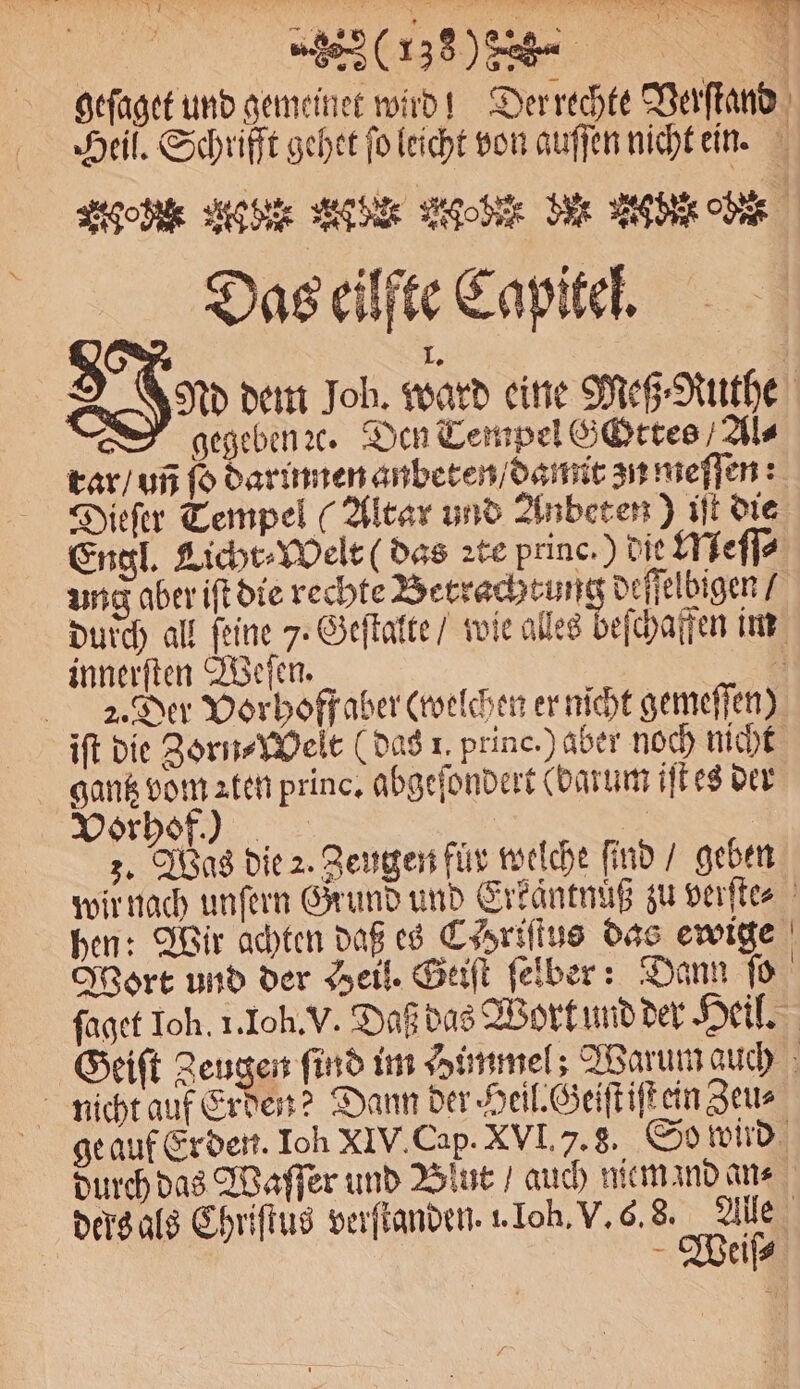 (138)
geſaget und gemeinet wird! Der rechte Verſtand
Heil. Schrifft gehet ſo leicht von auſſen nicht ein.
Das eilfte Capitel.
1.
UNd dem Joh. ward eine Meß-Ruthe
gegeben ꝛc. Den Tempel GOttes / Al-
tar / uñ ſo darinnen anbeten / damit zu meſſen:
Dieſer Tempel (Altar und Anbeten) iſt die
Engl. Licht-Welt (das 2te princ.) die Meſſ-
ung aber iſt die rechte Betrachtung deſſelbigen /
durch all ſeine 7. Geſtalte / wie alles beſchaffen im
innerſten Weſen.
2. Der Vorhoff aber (welchen er nicht gemeſſen)
iſt die Zorn-Welt (das 1. princ.) aber noch nicht
gantz vom 2ten princ. abgeſondert (darum iſt es der
Vorhof.)
3. Was die 2. Zeugen für welche ſind / geben
wir nach unſern Grund und Erkäntnüß zu verſte-
hen: Wir achten daß es CHriſtus das ewige
Wort und der Heil. Geiſt ſelber: Dann ſo
ſaget Ioh. 1. Ioh. V. Daß das Wort und der Heil.
Geiſt Zeugen ſind im Himmel; Warum auch
nicht auf Erden? Dann der Heil. Geiſt iſt ein Zeu-
ge auf Erden. Ioh XIV. Cap. XVI. 7. 8. So wird
durch das Waſſer und Blut / auch niemand an-
ders als Chriſtus verſtanden. 1. Ioh. V. 6. 8. Alle
Weiſ-